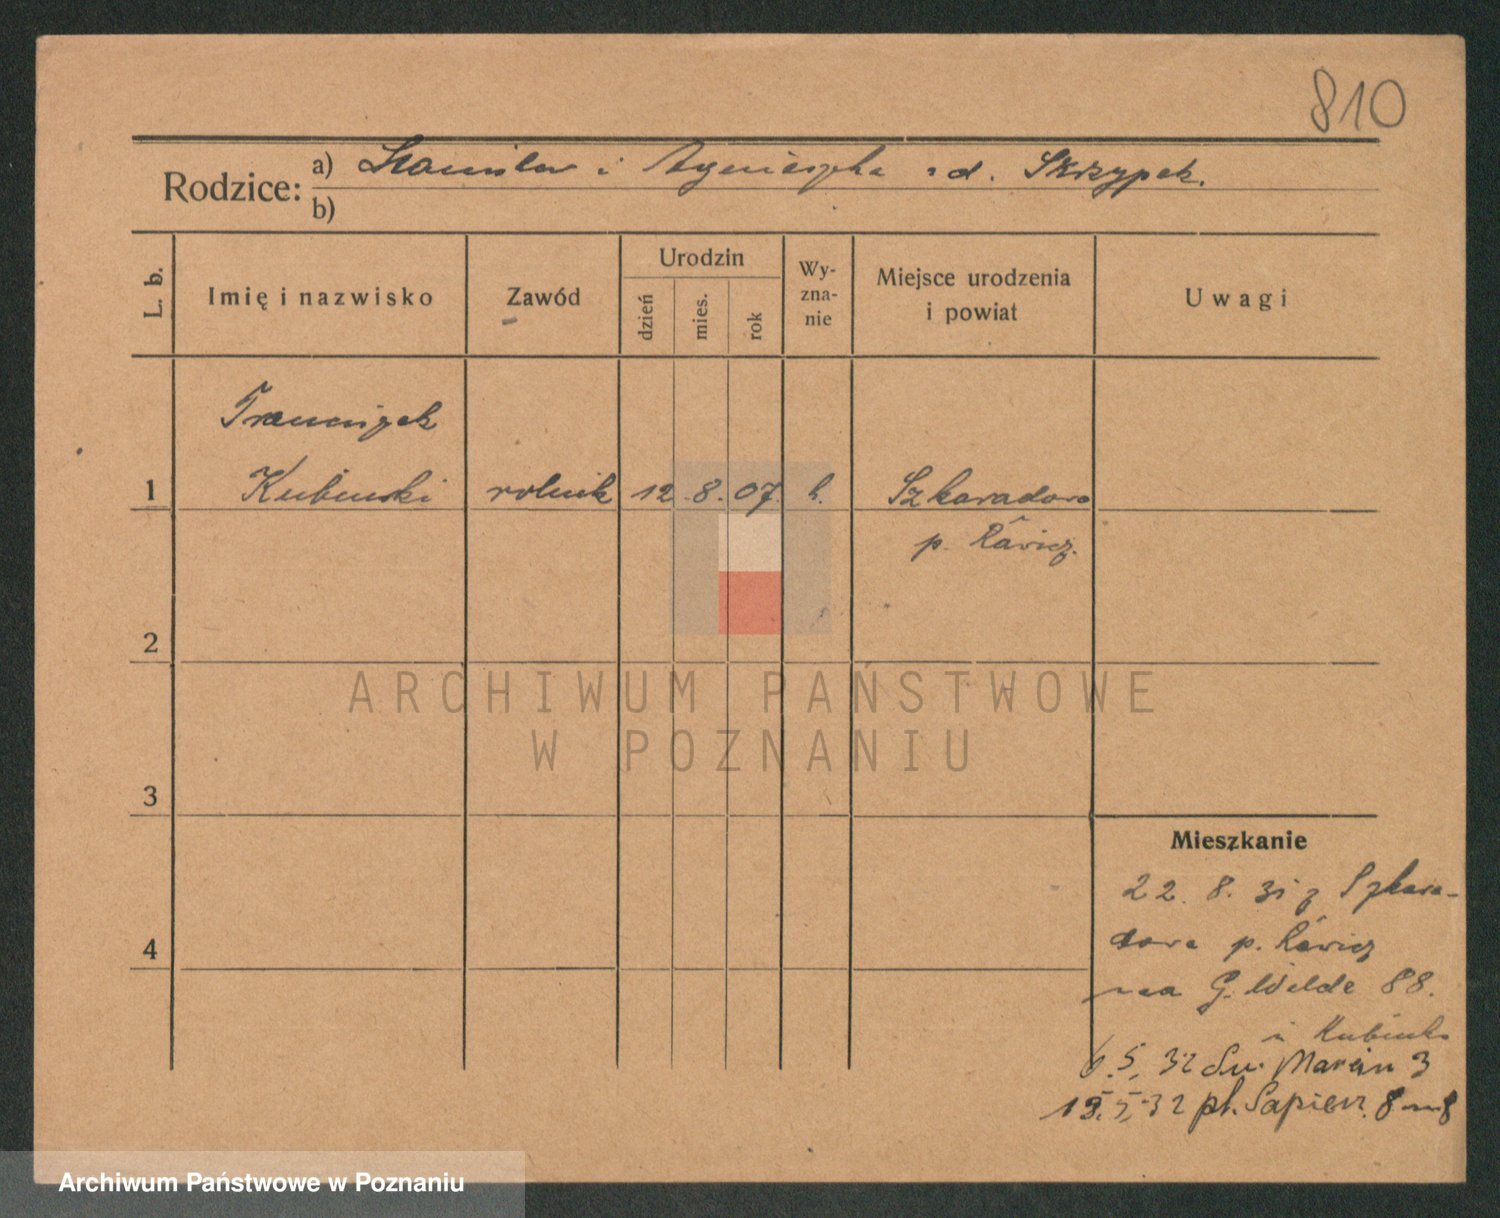 810
Rodzice: a) Stanisław i Agnieszka z d. Skrzypek.
b)
L. b. Imię i nazwisko Zawód Urodzin dzień mies. rok Wyznanie Miejsce urodzenia i powiat Uwagi
Franciszek
1 Kubinski rolnik 12. 8. 07. k. Szkaradowo
p. Rawicz.
2
ARCHIWUM PAŃSTWOWE
W POZNANIU
3
Mieszkanie
22. 8. 31 z Szkara-
4 dowa p. Rawicz
na G. Wilde 88.
Kubinski
6. 5. 32 Św. Marcin 3
5. 32 pl. Sapież. 8 m 8
Archiwum Państwowe w Poznaniu